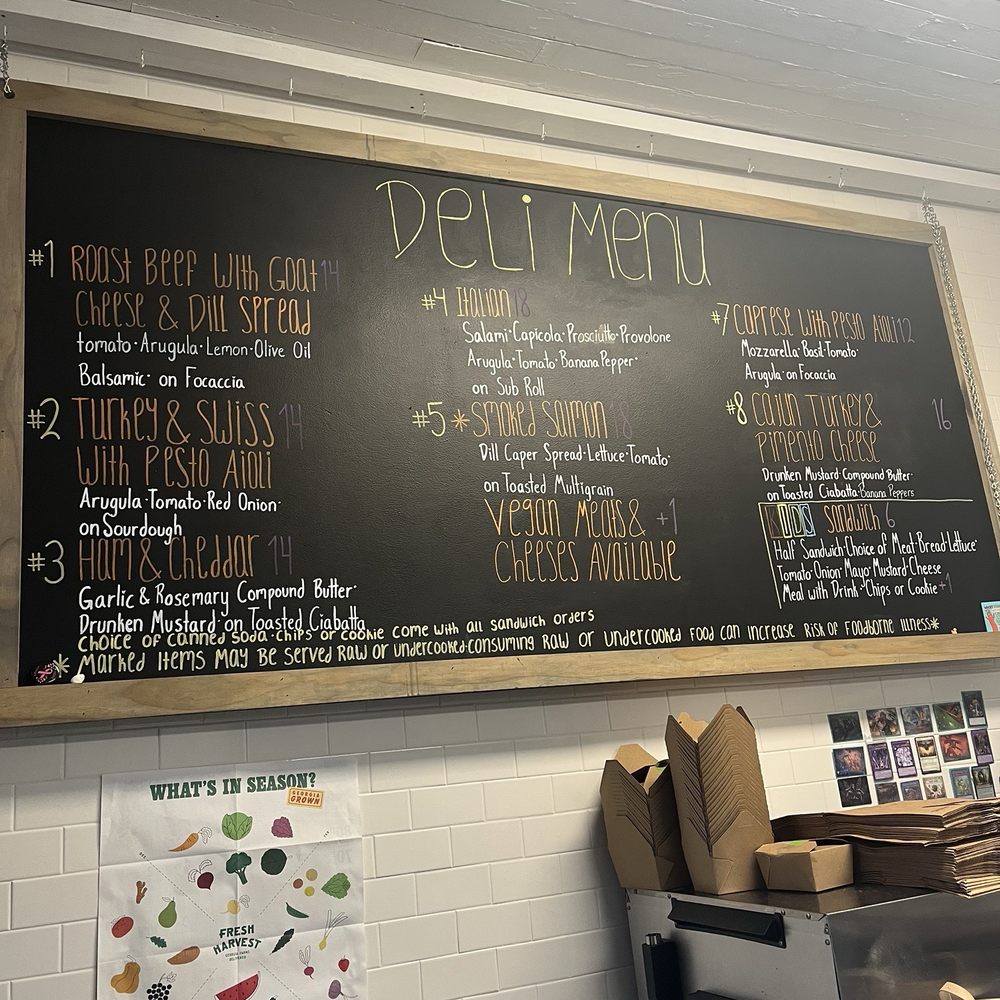 Deli Menu
#1 Roast Beef with Goat 14
Cheese & Dill Spread
tomato · Arugula · Lemon · Olive Oil
Balsamic · on Focaccia
#2 Turkey & Swiss 14
with Pesto Aioli
Arugula · Tomato · Red Onion ·
on Sourdough
#3 Ham & Cheddar 14
Garlic & Rosemary Compound Butter ·
Drunken Mustard · on Toasted Ciabatta
#4 Italian 18
Salami · Capicola · Prosciutto · Provolone
Arugula · Tomato · Banana Pepper ·
on Sub Roll
#5 * Smoked Salmon 18
Dill Caper Spread · Lettuce · Tomato ·
on Toasted Multigrain
Vegan Meats & +1
Cheeses Available
#7 Caprese with Pesto Aioli 12
Mozzarella · Basil · Tomato ·
Arugula · on Focaccia
#8 Cajun Turkey & 16
Pimento Cheese
Drunken Mustard · Compound Butter ·
on Toasted Ciabatta · Banana Peppers
KIDS Sandwich 6
Half Sandwich · Choice of Meat · Bread · Lettuce ·
Tomato · Onion · Mayo · Mustard · Cheese
Meal with Drink · Chips or Cookie +1
Choice of canned soda · chips or cookie come with all sandwich orders
* Marked Items May Be Served Raw or undercooked · consuming Raw or undercooked Food can Increase Risk of Foodborne Illness *
WHAT'S IN SEASON?
GEORGIA GROWN
FRESH
HARVEST